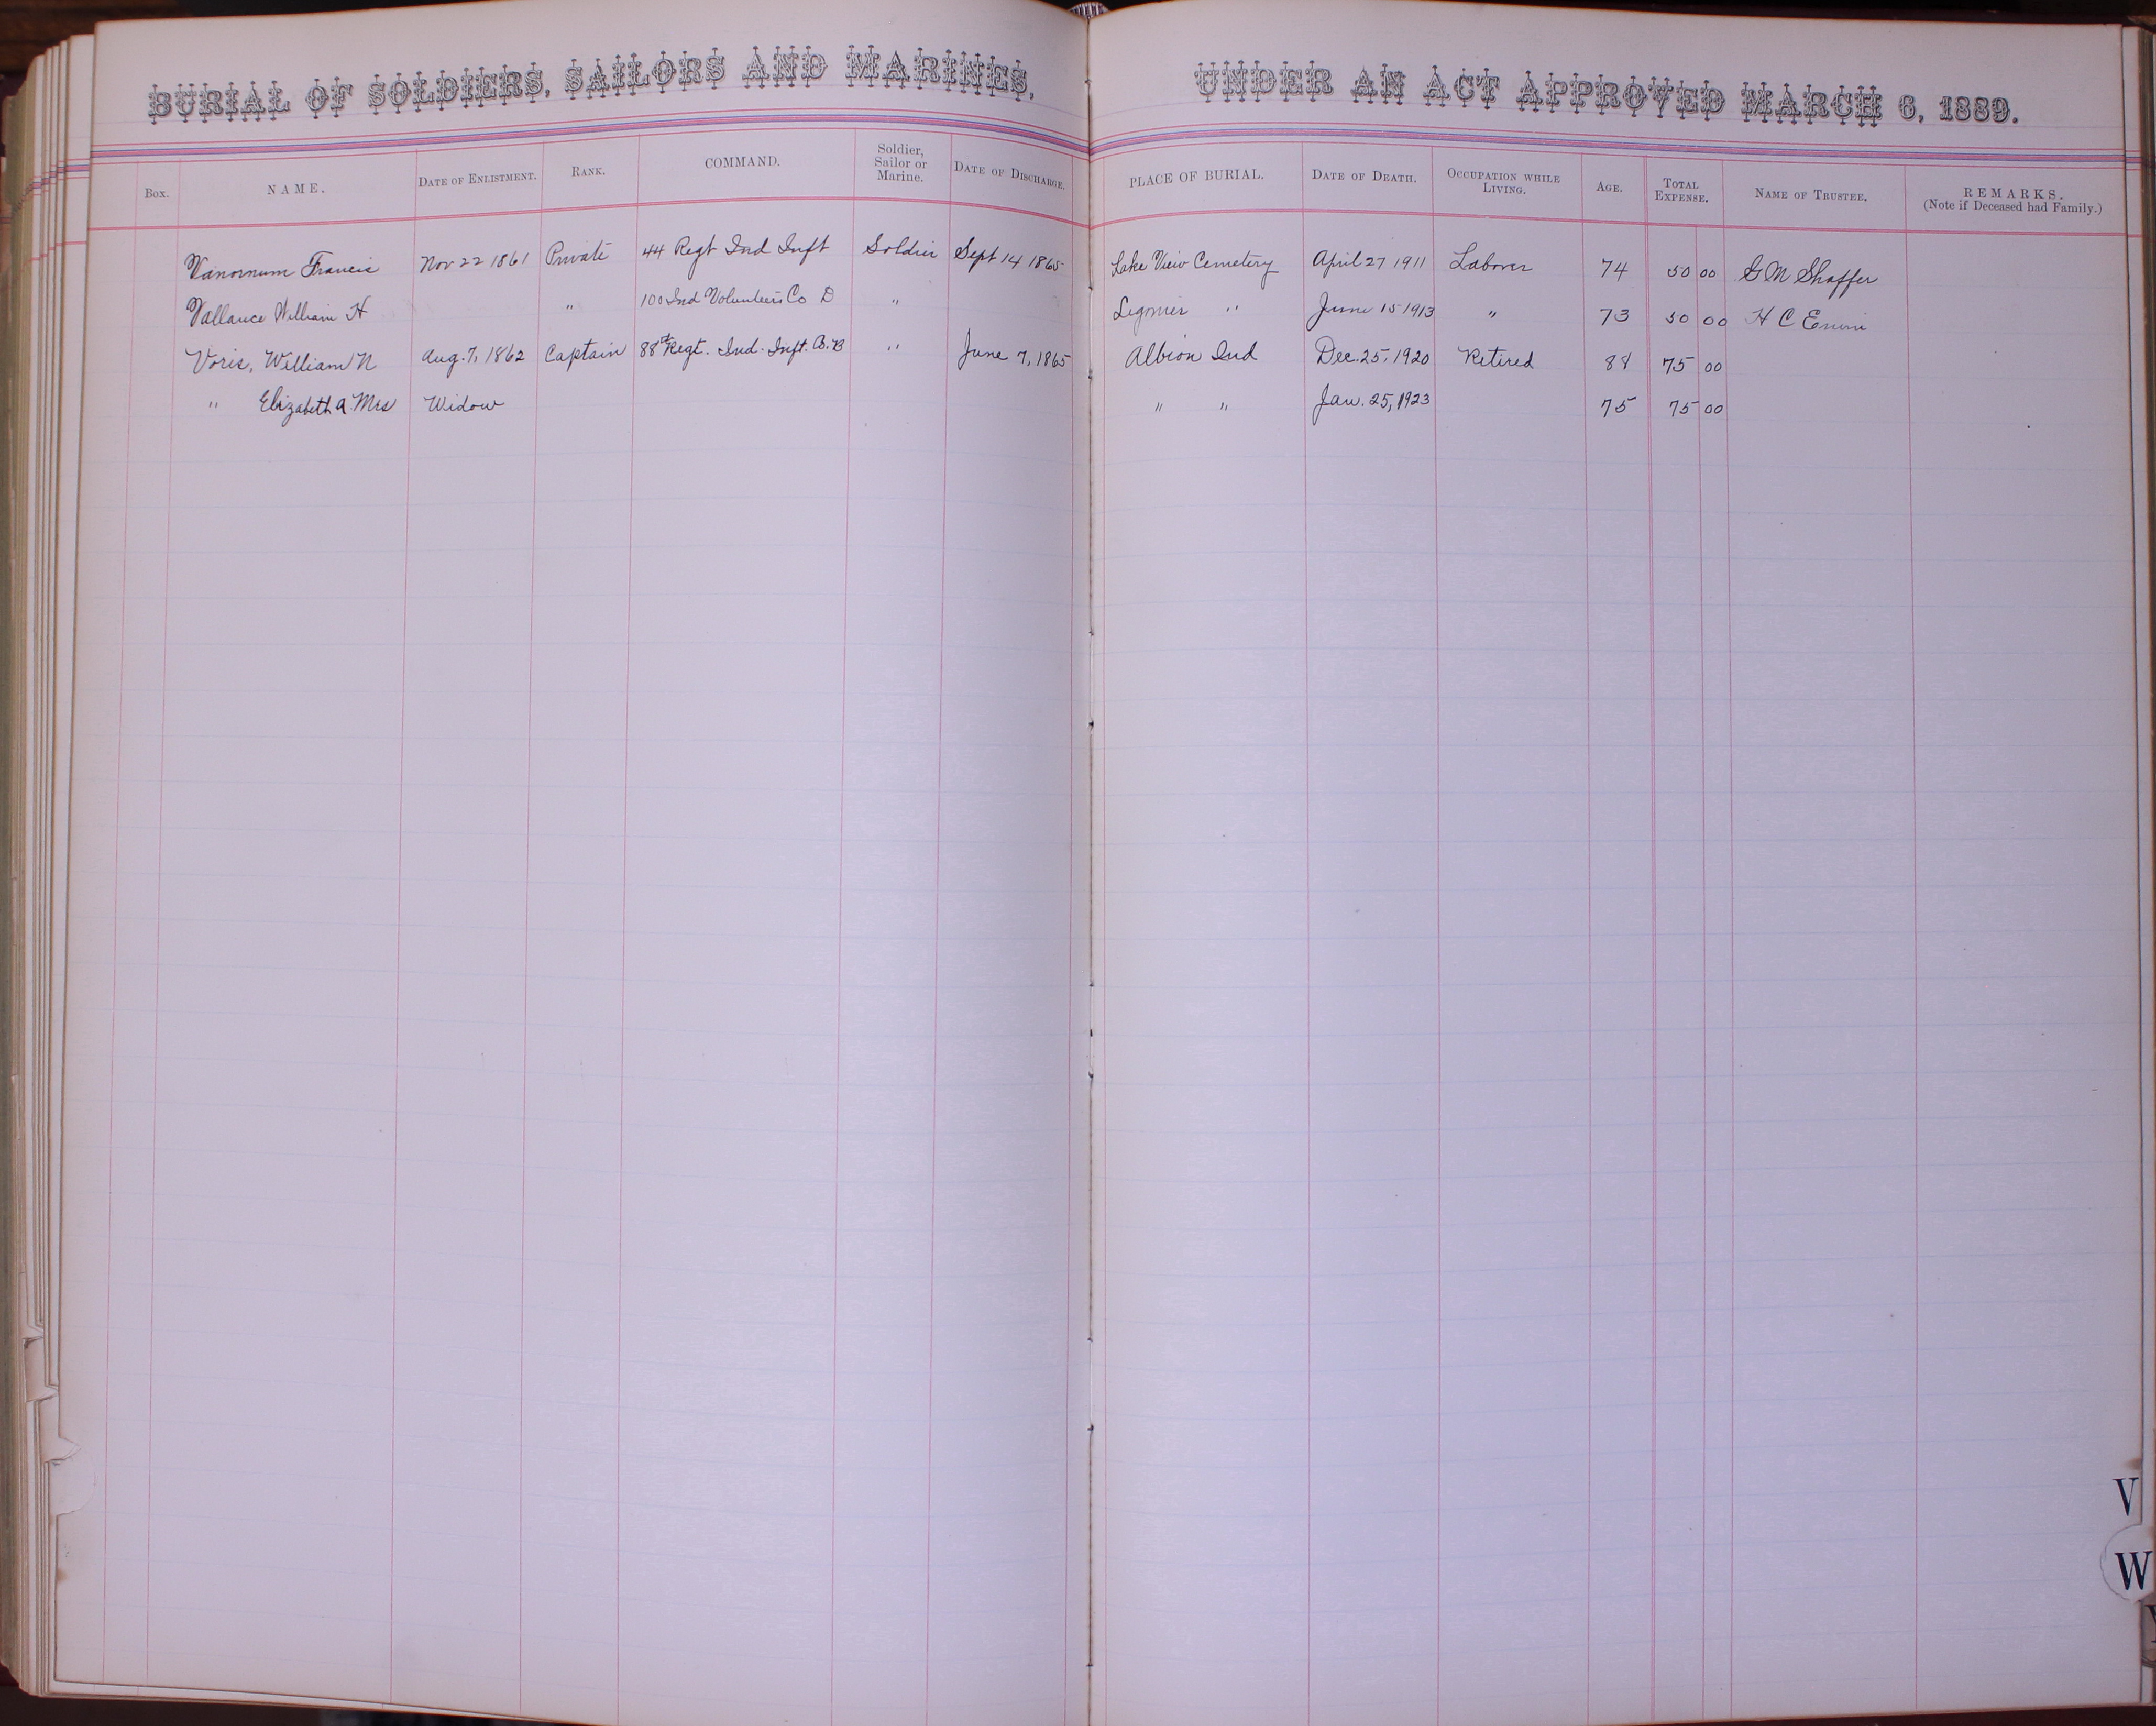 BURIAL OF SOLDIERS, SAILORS AND MARINES, UNDER AN ACT APPROVED MARCH 6, 1889.
Box. NAME. DATE OF ENLISTMENT. RANK. COMMAND. Soldier, Sailor or Marine. DATE OF DISCHARGE. PLACE OF BURIAL. DATE OF DEATH. OCCUPATION WHILE LIVING. AGE. TOTAL EXPENSE. NAME OF TRUSTEE. REMARKS. (Note if Deceased had Family.)
Vanornum Francis Nov 22 1861 Private 44 Regt Ind Inft Soldier Sept 14 1865 Lake View Cemetery April 27 1911 Laborer 74 50 00 G M Shaffer
Vallance William H " 100 Ind Volunteers Co D " Ligonier " June 15 1913 " 73 50 00 H C
Voris, William N Aug. 7, 1862 Captain 88th Regt. Ind. Inft. " June 7, 1865 Albion Ind Dec. 25, 1920 Retired 88 75 00
" Elizabeth A. Mrs Widow " " Jan. 25, 1923 75 75 00
V
W